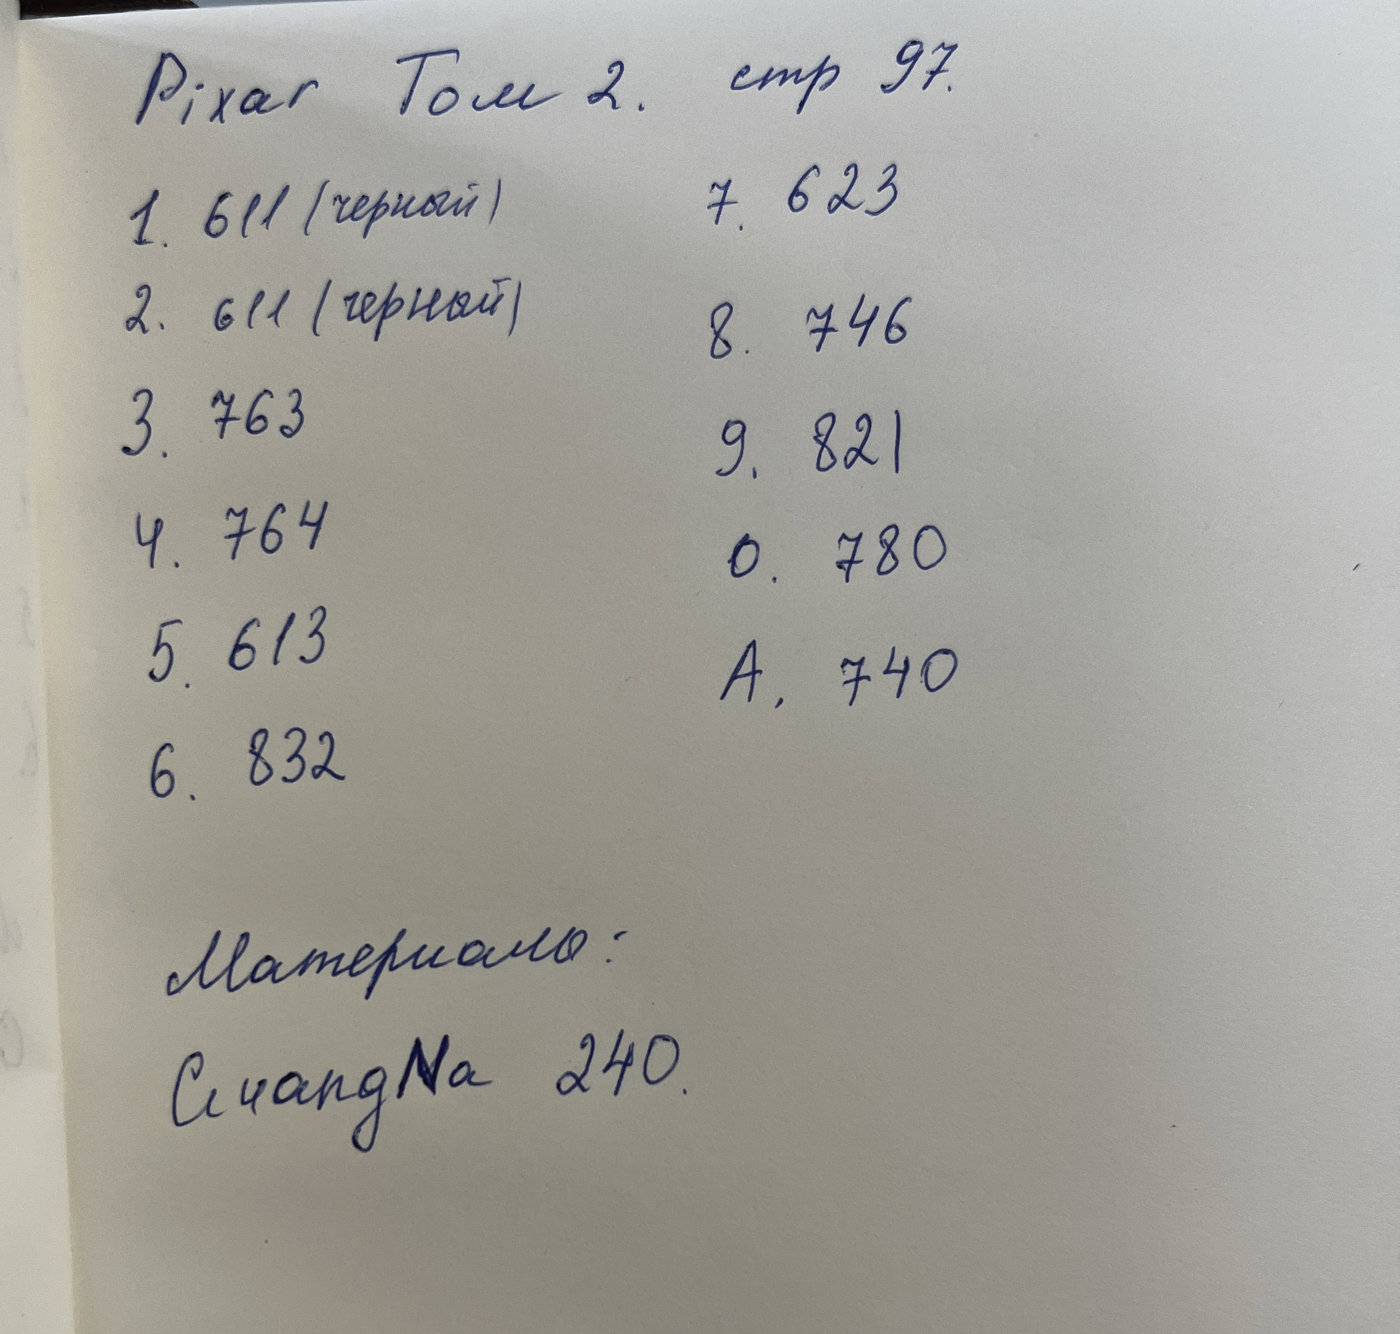 Pixar Том 2. стр 97.
1. 611 (черный)
2. 611 (черный)
3. 763
4. 764
5. 613
6. 832
7. 623
8. 746
9. 821
0. 780
A. 740
Материалы:
GuangNa 240.